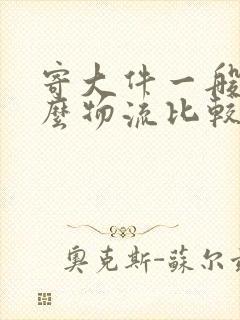 寄大件一般
麽物流比較
奧克斯-蘇尔